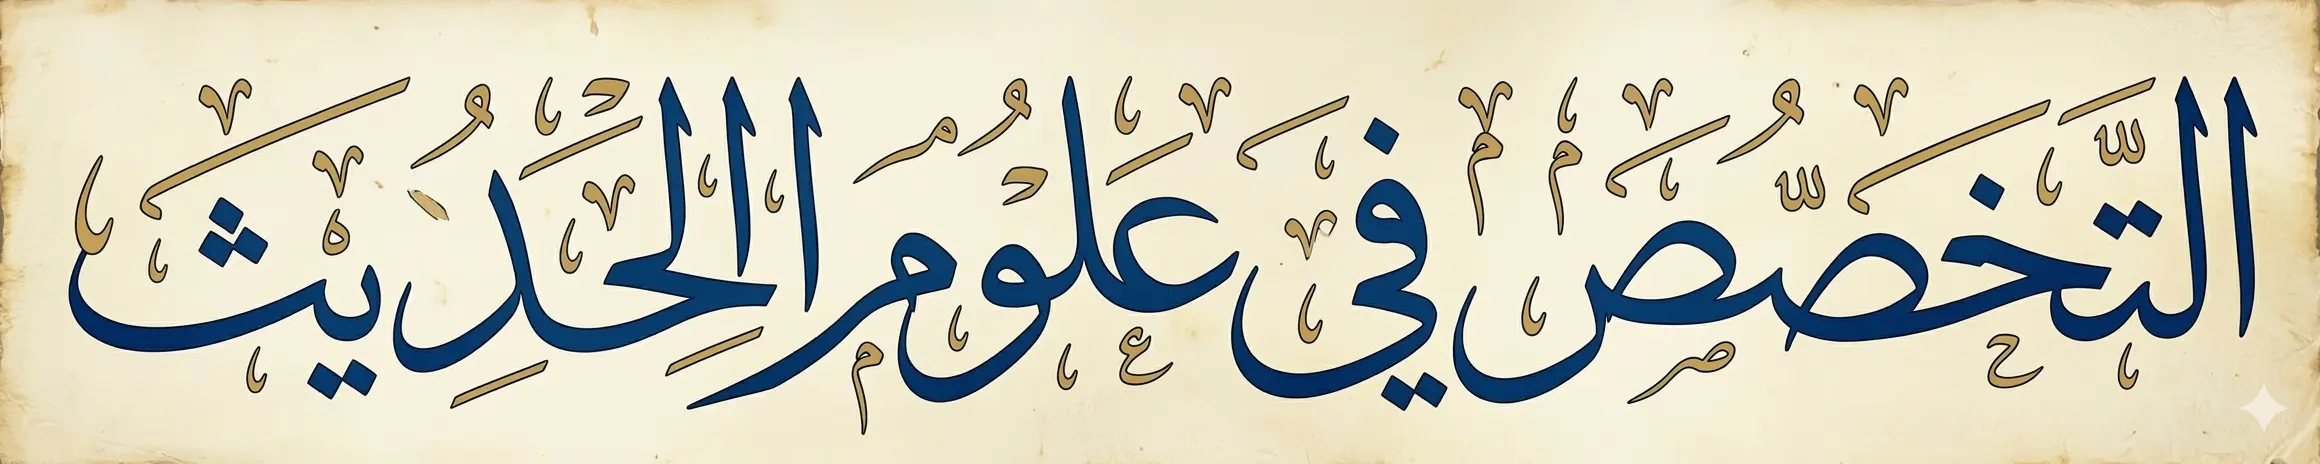 التَّخَصُّص في عُلُومِ الحَدِيث